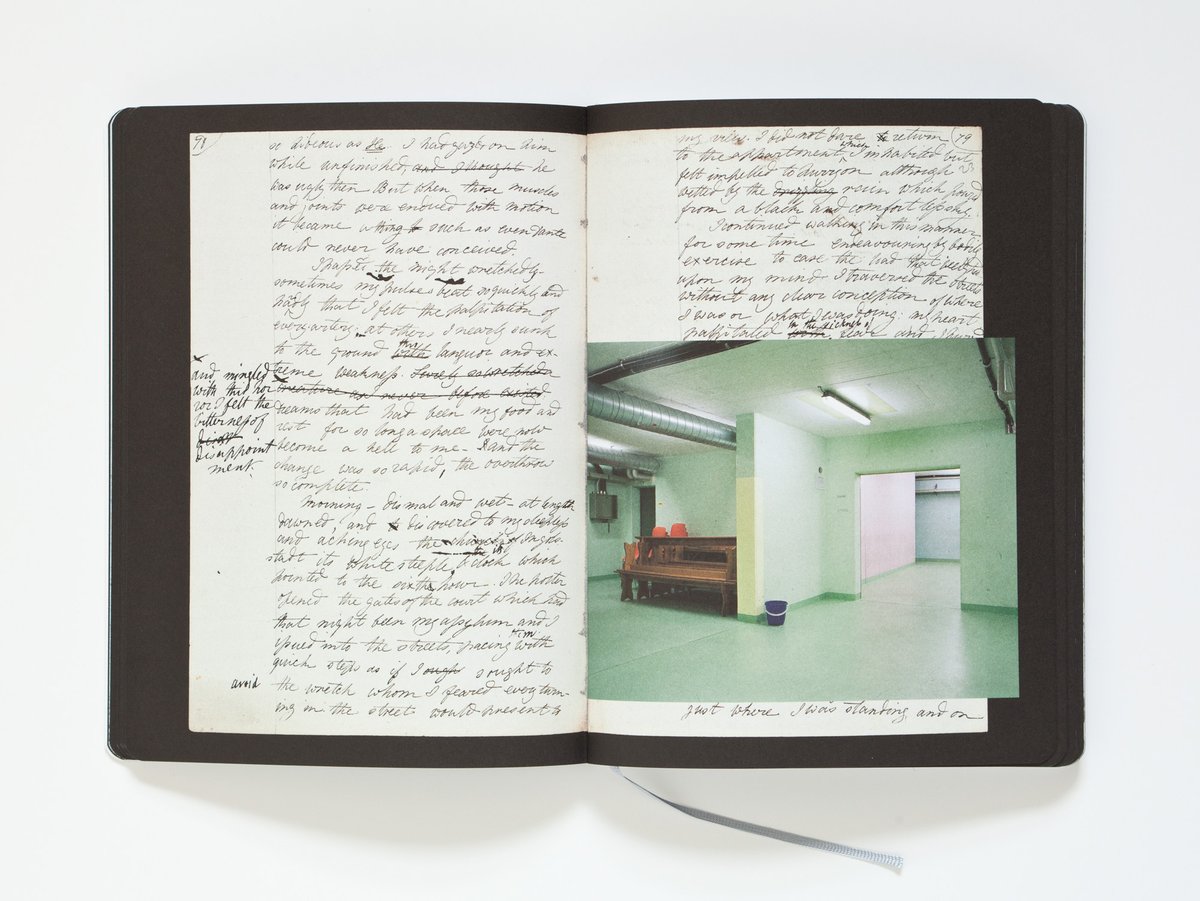 so hideous as He I had gazed on him
while unfinished; and I thought he
was ugly then But when those muscles
and joints were endued with motion
it became a thing such as even Dante
could never have conceived.
I passed the night wretchedly-
sometimes my pulse beat so quickly and
hardly that I felt the palpitation of
every artery. at others I nearly sunk
to the ground with languor and ex-
treme weakness. Surely so wretched a
creature had never before existed
dreams that had been my food and
rest for so long a space were now
become a hell to me - And the
change was so rapid, the overthrow
so complete.
Morning - dismal and wet - at length
dawned, and discovered to my sleepless
and aching eyes the church of Ingols-
stadt its white steeple & clock which
pointed to the sixth hour - The porter
opened the gates of the court which had
that night been my asylum and I
issued into the streets, pacing them with
quick steps as if I sought to
the wretch whom I feared every turn-
ing in the street would present to
x
and mingled
with this hor
ror I felt the
bitterness of
disappoint
ment.
avoid
my view. I did not dare to return
to the appartment which I inhabited but
felt impelled to hurry on although
wetted by the rain which poured
from a black and comfortless sky.
I continued walking in this manner
for some time endeavouring by bodily
exercise to ease the load that
upon my mind I traversed the streets
without any clear conception of where
I was or what I was doing: my heart
palpitated in the sickness of fear and I
just where I was standing and on